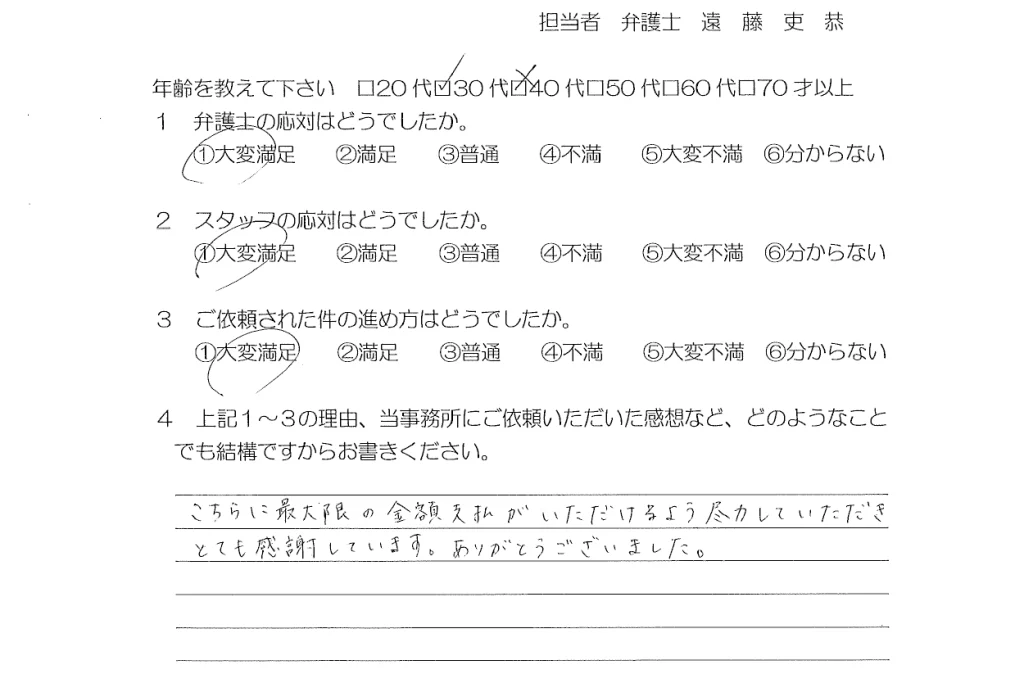 担当者　弁護士　遠　藤　吏　恭
年齢を教えて下さい　□20代☑30代☑40代□50代□60代□70才以上
１　弁護士の応対はどうでしたか。
①大変満足　②満足　③普通　④不満　⑤大変不満　⑥分からない
２　スタッフの応対はどうでしたか。
①大変満足　②満足　③普通　④不満　⑤大変不満　⑥分からない
３　ご依頼された件の進め方はどうでしたか。
①大変満足　②満足　③普通　④不満　⑤大変不満　⑥分からない
４　上記１～３の理由、当事務所にご依頼いただいた感想など、どのようなこと
でも結構ですからお書きください。
こちらに最大限の金額支払がいただけるよう尽力していただき
とても感謝しています。ありがとうございました。